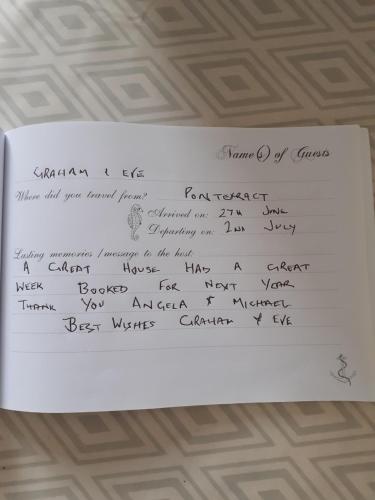 Name(s) of Guests
GRAHAM & EVE
Where did you travel from? PONTEFRACT
Arrived on: 27th JUNE
Departing on: 2nd JULY
Lasting memories / message to the host:
A GREAT HOUSE HAD A GREAT
WEEK BOOKED FOR NEXT YEAR
THANK YOU ANGELA & MICHAEL
BEST WISHES GRAHAM & EVE